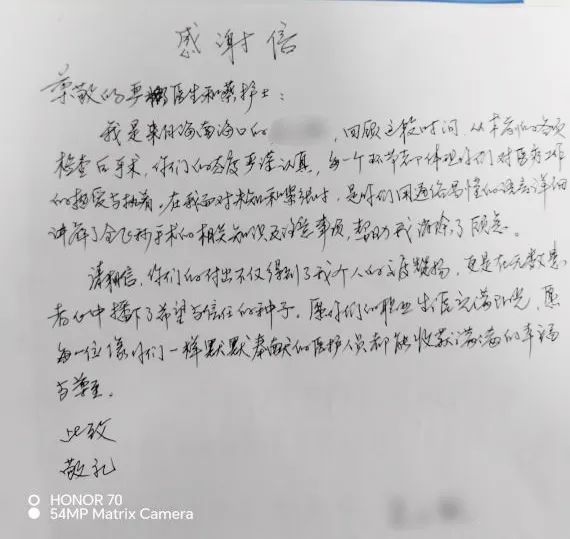 感谢信
尊敬的要医生和蔡护士：
我是来自海南海口的，回顾这段时间，从术前的各项
检查到手术，你们的态度严谨认真，每一个环节都体现你们对医疗工作
的热爱与执着。在我面对未知和紧张时，是你们用通俗易懂的语言详细
讲解了全飞秒手术的相关知识及注意事项，帮助我消除了顾虑。
请相信，你们的付出不仅得到了我个人的高度赞扬，也是在无数患
者心中播下了希望与信任的种子。愿你们的职业生涯充满阳光，愿
每一位像你们一样默默奉献的医护人员都能收获满满的幸福
与尊重。
此致
敬礼
HONOR 70
54MP Matrix Camera